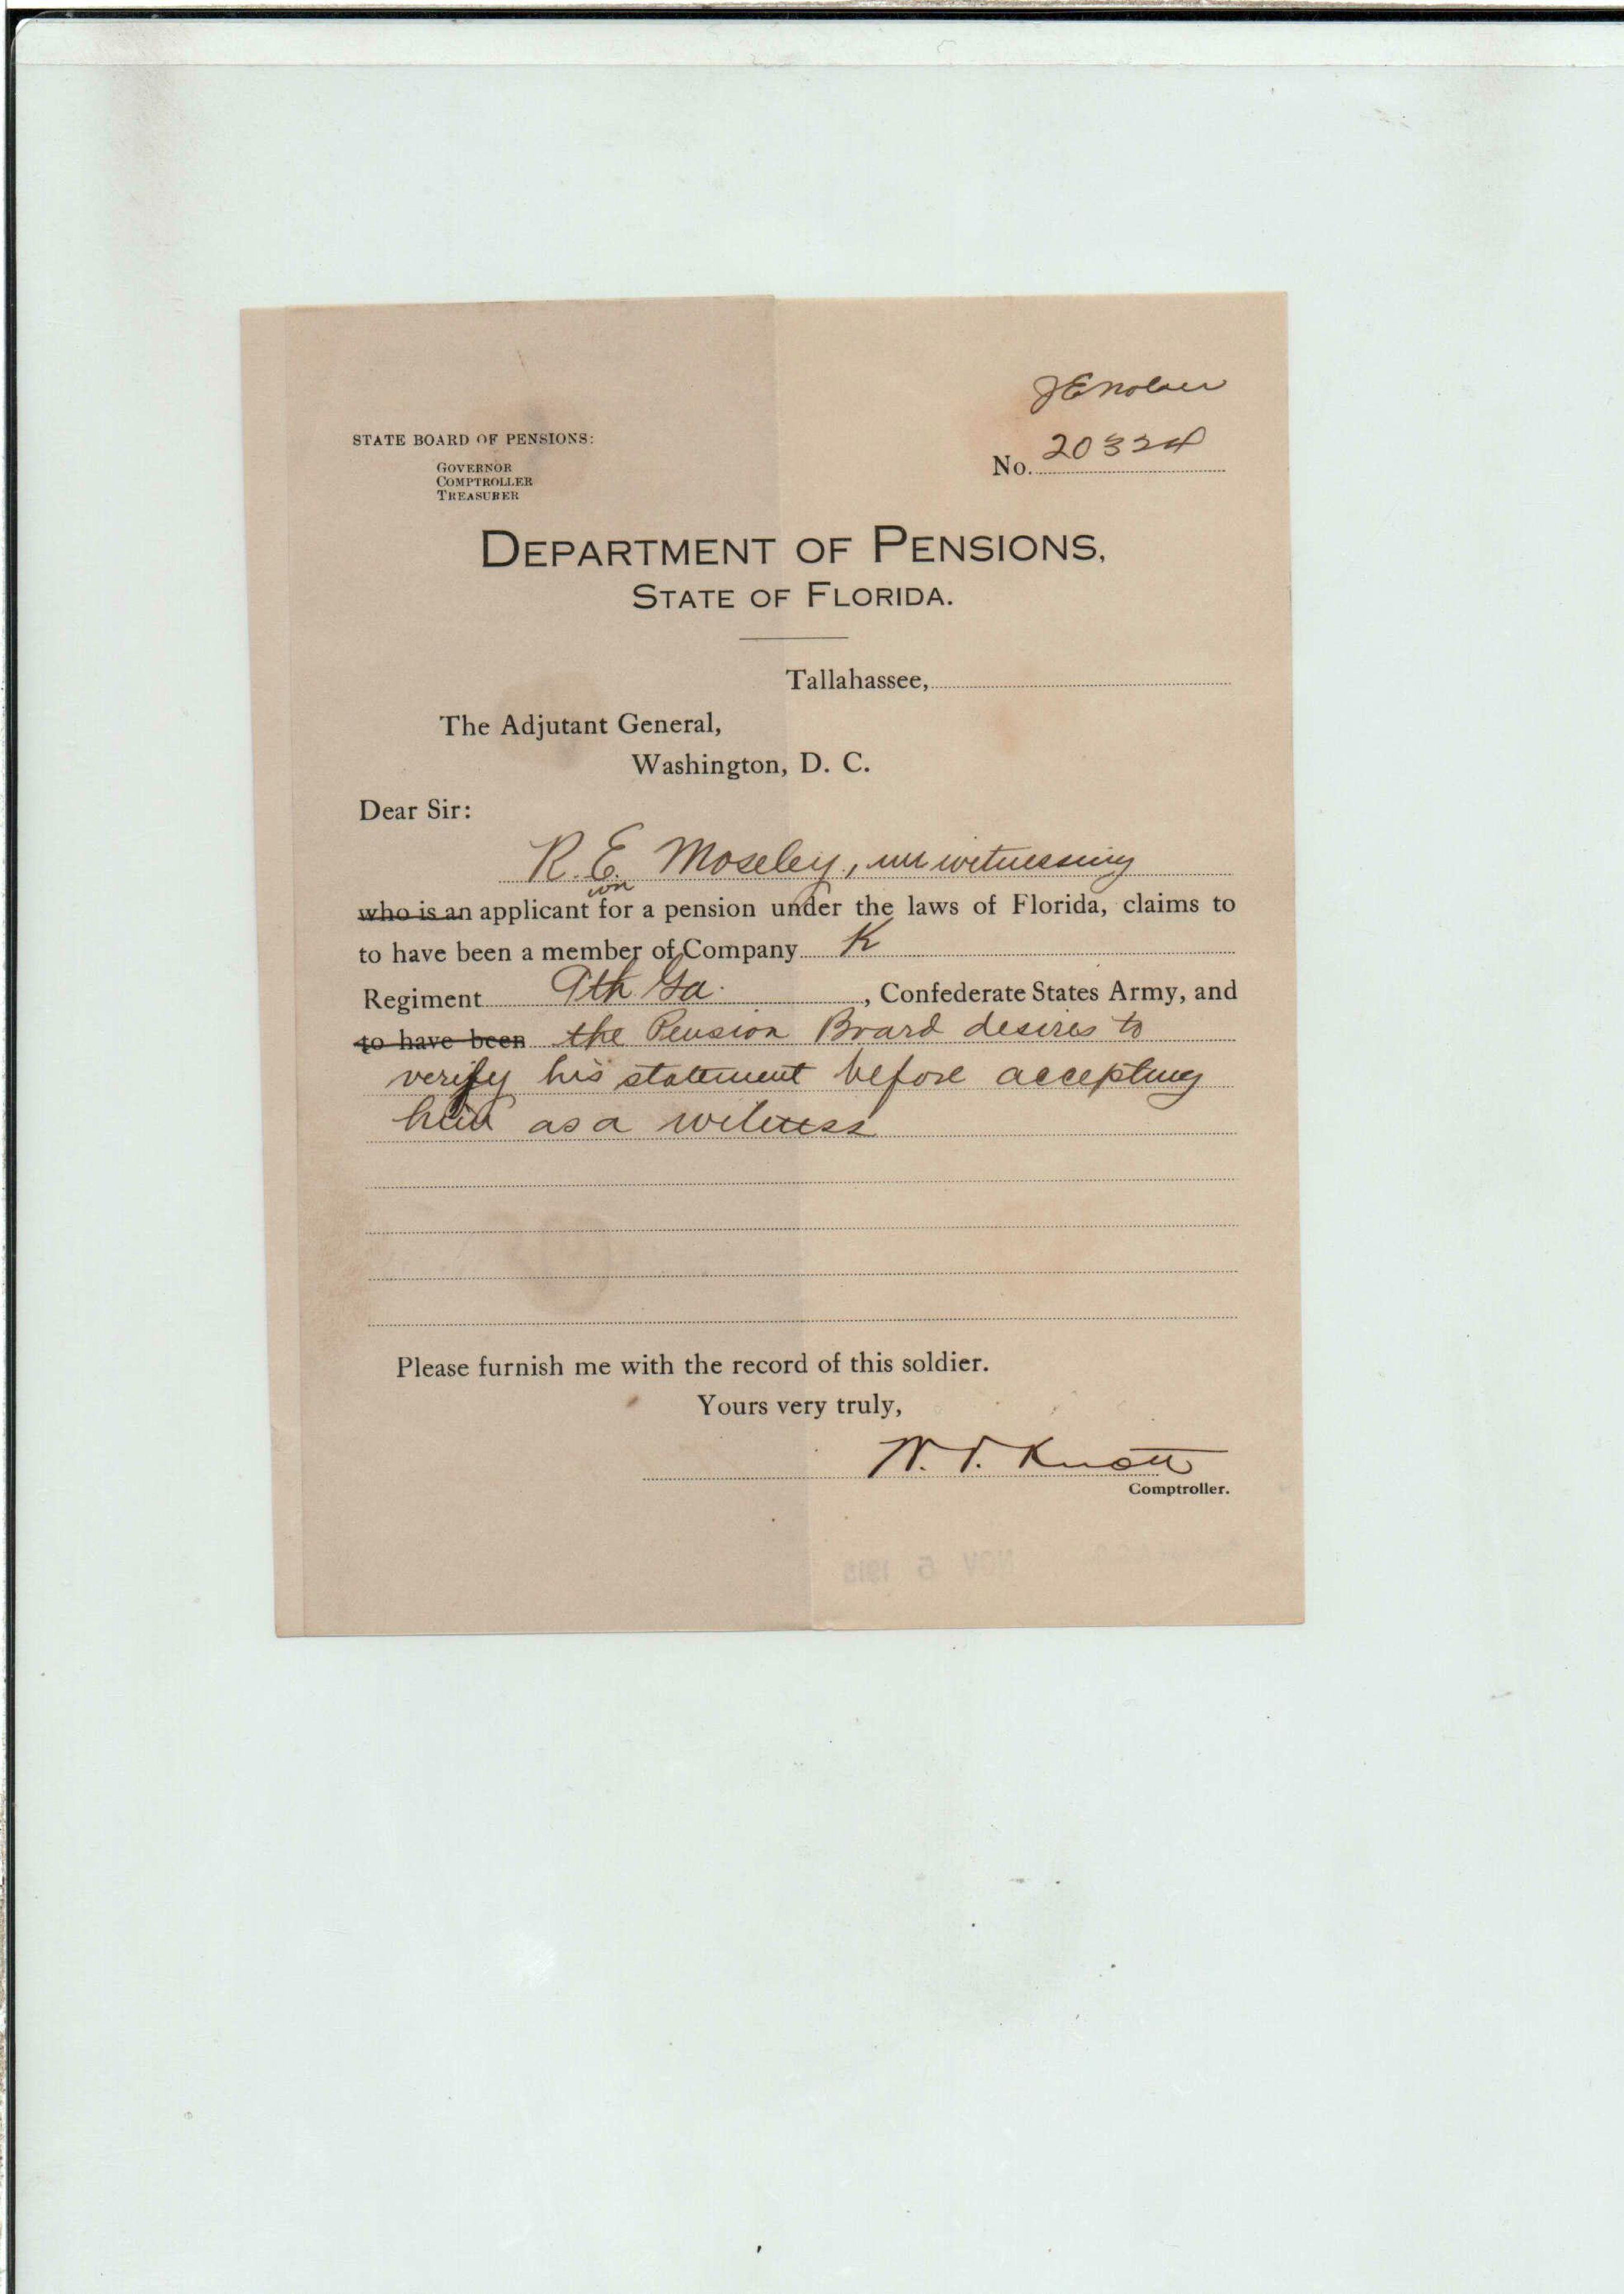 J E Nolan
STATE BOARD OF PENSIONS:
GOVERNOR
COMPTROLLER
TREASURER
No. 20324
DEPARTMENT OF PENSIONS,
STATE OF FLORIDA.
Tallahassee,
The Adjutant General,
Washington, D. C.
Dear Sir:
R. E. Moseley, in witnessing
an
who is an applicant for a pension under the laws of Florida, claims to
to have been a member of Company K
Regiment 9th Ga. , Confederate States Army, and
to have been the Pension Board desires to
verify his statement before accepting
him as a witness
Please furnish me with the record of this soldier.
Yours very truly,
W. V. Knott
Comptroller.
NOV 5 191